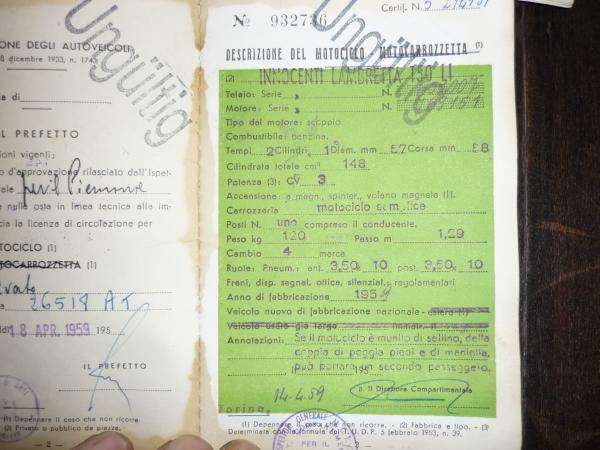 ONE DEGLI AUTOVEICOLI
8 dicembre 1933, n. 1743
Ungültig
a di
IL PREFETTO
ioni vigenti;
o d'approvazione rilasciato dall'Ispet-
rale per il Piemonte
e nulla osta in linea tecnica alla im-
cia la licenza di circolazione per
OTOCICLO (1)
MOTOCARROZZETTA (1)
26518 AT
18 APR. 1959 195
IL PREFETTO
(1) Depennare il caso che non ricorre.
(2) Privato o pubblico da piazza.
- 2 -
Certif. N.
No 932736
Ungültig
DESCRIZIONE DEL MOTOCICLO - MOTOCARROZZETTA (1)
(2) INNOCENTI LAMBRETTA 150 LI
Telaio: Serie N.
Motore: Serie N.
Tipo del motore: scoppio.
Combustibile: benzina.
Tempi 2 Cilindri 1 Diam. mm 57 Corsa mm 58
Cilindrata totale cm³ 148
Potenza (3): CV 3
Accensione: a magn., spinter., volano magnete (1).
Carrozzeria motociclo semplice
Posti N. uno compreso il conducente.
Peso kg 120 Passo m 1,29
Cambio 4 marce
Ruote: Pneum.: ant. 3,50x 10 post. 3,50x 10
Freni, disp. segnal. ottice, silenziat.: regolamentari
Anno di fabbricazione 1959
Veicolo nuovo di fabbricazione nazionale - estera (1)
Veicolo usato già targa
Annotazioni: Se il motociclo è munito di sellino, della
coppia di poggia piedi e di maniglia,
può portare un secondo passeggero.
14-4-59
p. Il Direttore Compartimentale
Torino,
(1) Depennare il caso che non ricorre. - (2) Fabbrica e tipo. - (3)
Determinata con la formula del T. U. D. P. 5 febbraio 1953, n. 39.